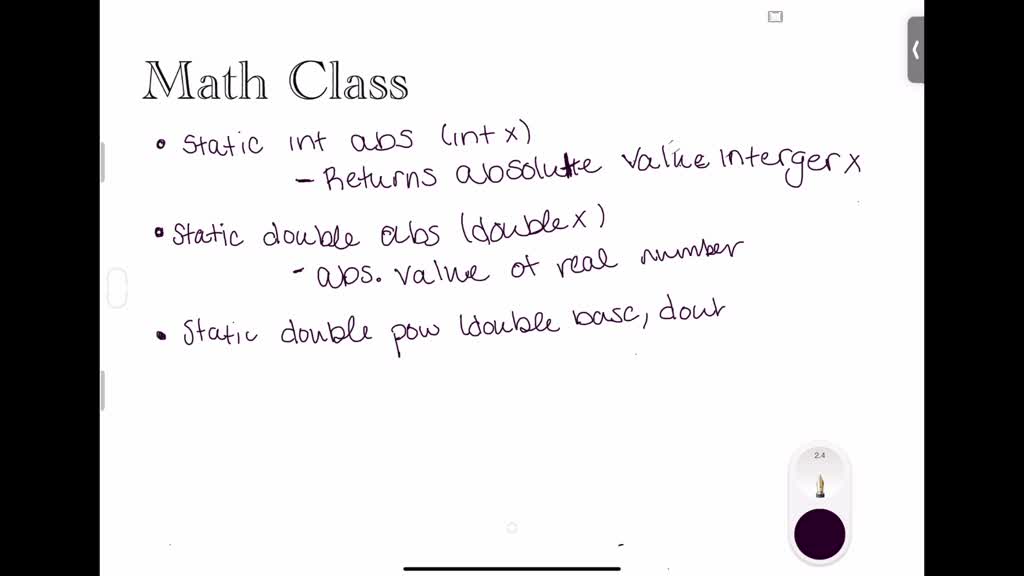 Math Class
• Static int abs (int x)
- Returns absolute value interger x
• Static double abs (double x)
- abs. value of real number
• Static double pow (double base, doub
2.4